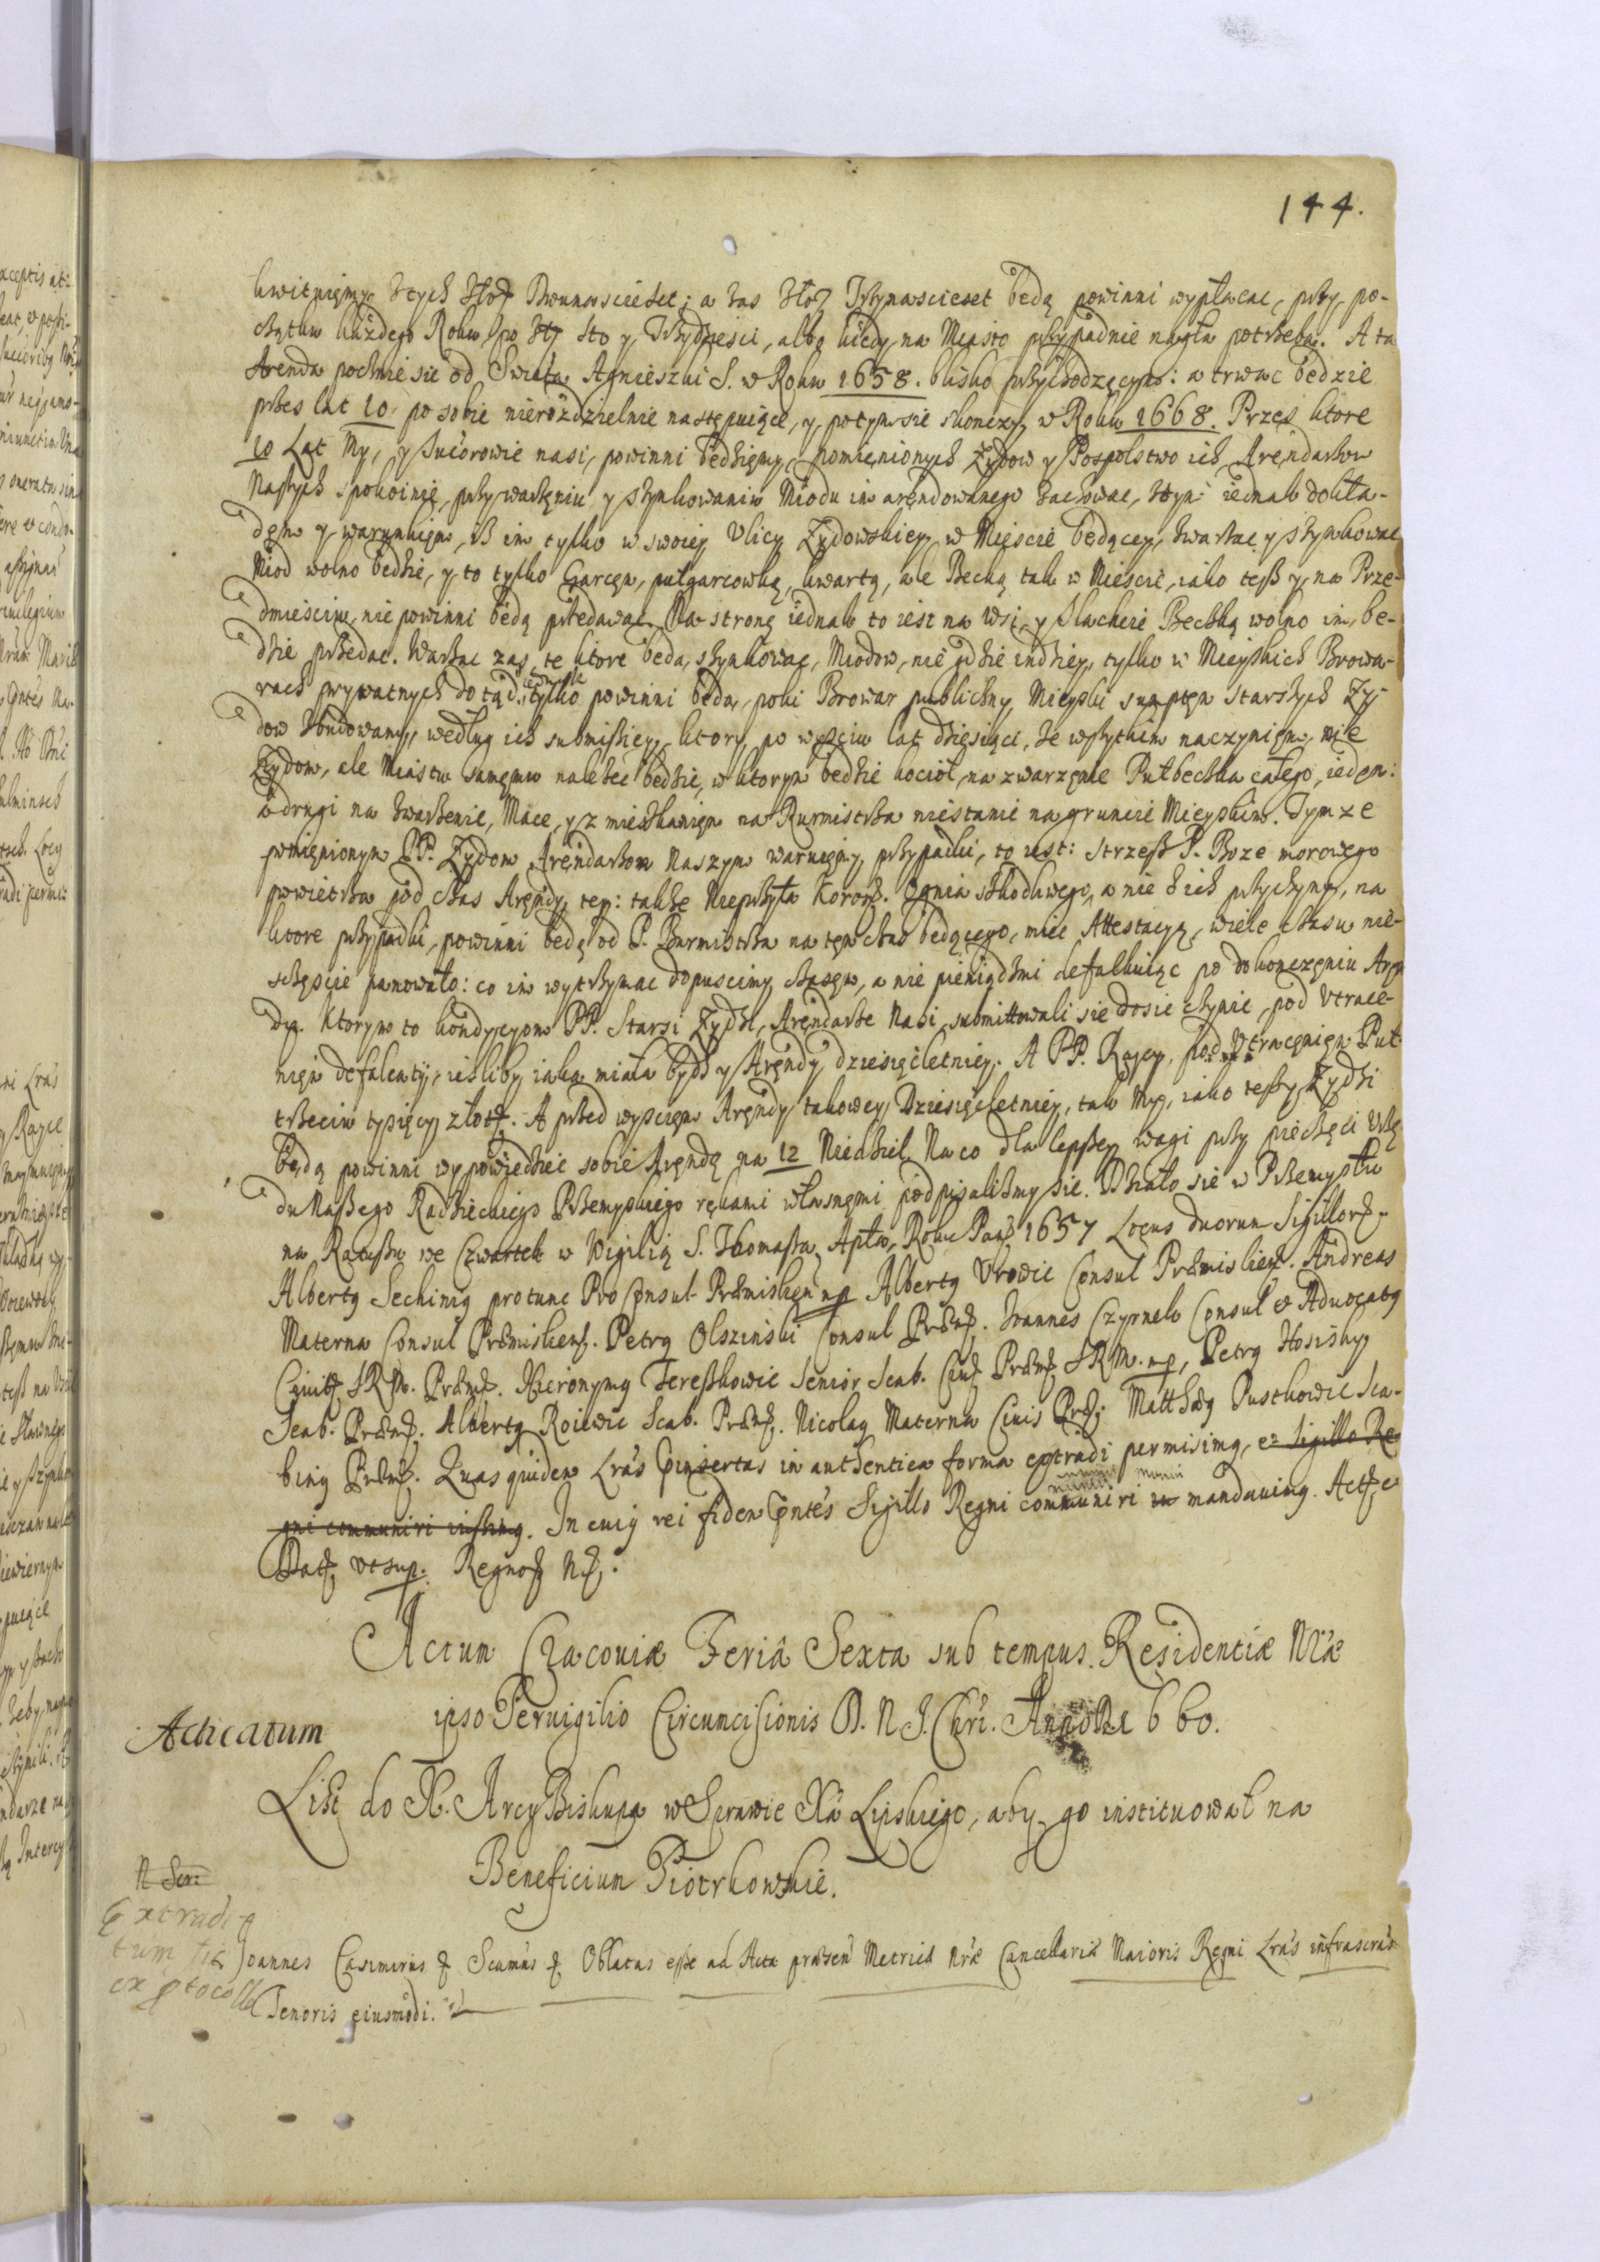 144.
kwituięmy. Ztych Zło Dwunascieset; a zas Zło Trzynascieset będą powinni wypłacac, przy po-
czątku każdego Roku po sto y Trzydziesci, albo kiedy na Miasto przypadnie nagła potrzeba. A ta
Arenda pocznie sie od Swięta Agnieszki S. w Roku 1658. blisko przychodzącym: a trwac będzie
przes lat 10. po sobie nierozdzielnie następuiące, y potym sie skonczy w Roku 1668. Przes ktore
10 Lat My, y Sukcorowie nasi, powinni będziemy, pomienionych Zydow y Pospolstwo ich Arendarzow
Naszych spokoinie, przy warzeniu y szynkowaniu Miodu im arendowanego zachowac, stym iednak dokła-
dem y warunkiem, iż im tylko w swoiey Vlicy Zydowskiey w Miescie będącey, zwarzac y szynkowac
Miod wolno będzie, y to tylko Garcem, pułgarcowką, kwartą, ale Beczką tak w Miescie, iako tesz y na Prze-
dmiesciu, nie powinni będą przedawac. Na stronę iednak to iest na Wsi, y Slachcie Beczką wolno im bę-
dzie przedac. Warzac zas, te ktore będą szynkowac, Miodow, nie gdzie indziey, tylko w Mieyskich Browa-
rach prywatnych dotąd tylko powinni będą, poki Browar publiczny Mieyski sumptem starszych Zy-
dow zbudowany, według ich submissiey, ktory po wysciu lat dziesiąci, ze wszytkim naczyniem, nie
Zydom, ale Miastu samemu należeć będzie, w ktorym będzie kocioł, na zwarzenie Pułbeczka całego, ieden:
a drugi na zwarzenie, Mace, y z mieszkaniem na Rurmistrza niestanie na gruncie Mieyskim. Tymze
pomienionym PP. Zydom Arendarzom Naszym waruiemy przypadki, to iest: strzesz P. Boze morowego
powietrza pod czas Arendy tey: takze Nieprzyła Koron. Ognia szkodliwego, a nie z ich przyczyny, na
ktore przypadki, powinni będą od P. Burmistrza na ten czas będącego, miec Attestacyą, wiele czasu nie-
szczęscie panowało: co im wytrzymac dopuscimy czasem, a nie pieniądzmi defalkuiąc po dokonczeniu Aren
dy. Ktorym to kondycyom PP. Starsi Zydzi, Arendarze Nasi, submittowali sie dosic czynic, pod vtrace-
niem defalcaty, iesliby iaka miała bydz y Arendy dziesięcletniey. A PP. Raycy, pod vtraceniem Puł-
trzecia tysięcy złot. A przed wysciem Arendy takowey Dziesięcletniey, tak My, iako tesz y Zydzi
będą powinni wypowiedziec sobie Arendę na 12 Niedziel. Na co dla lepszey wagi przy pieczęci Vrzę
du Naszego Radzieckiego Przemyskiego rękami własnemi podpisalismy sie. Działo sie w Przemyslu
na Ratuszu we Czwartek w Wigilią S. Thomasza Aptła, Roku Pań 1657 Locus duorum Sigillor.
Albertꝰ Sechinig protunc Pro Consul Præmislien mp Albertꝰ Vrowic Consul Præmislien. Andreas
Materna Consul Præmislien. Petrꝰ Olszinski Consul Præm. Ioannes Czyrnek Consul et Advocatꝰ
Ciuit SRM. Præm. Hieronymꝰ Tereszkowic Senior Scab. Ciuit Præm SRM. mp, Petrꝰ Hosisky
Scab. Præm. Albertꝰ Roiewic Scab. Præm. Nicolaꝰ Materna Ciuis Præm: Matthæꝰ Pustkowic Sca-
binꝰ Præm. Quas quidem Lras insertas in authentica forma extradi permisimꝰ, et sigillo Re
gni communiri iussimꝰ. In cuiꝰ rei fidem pntes Sigillo Regni communiri mandauimꝰ. Act et
Dat vt sup. Regnor N.
Actum Cracouiæ Feriâ Sexta sub tempus Residentiæ Nræ
ipso Peruigilio Circumcisionis D. N. J. Chri. Anno 1660.
Acticatum
List do X. ArcyBiskupa w Sprawie Xa Lipskiego, aby go instituował na
Beneficium Piotrkowskie.
Extradi-
tum
ex ptocollo
Joannes Casimirus Scimus Oblatas esse ad Acta præsen Metricæ Nræ Cancellariæ Maioris Regni Lras infrascras
Tenoris eiusmodi.